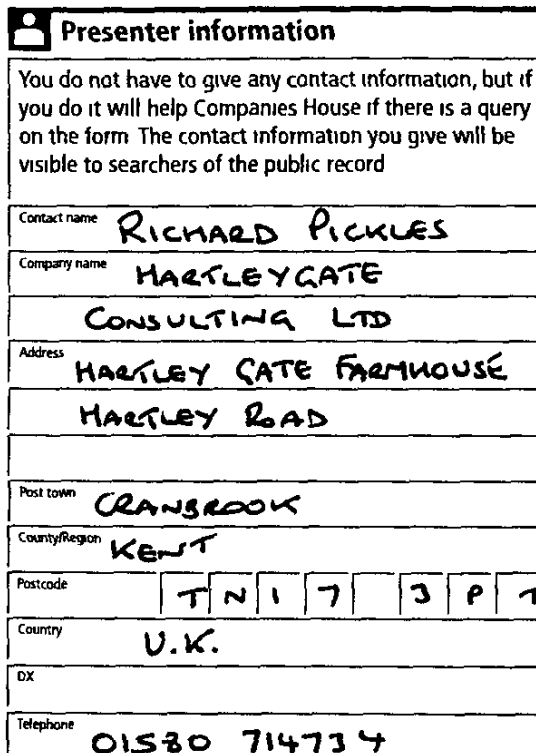 Presenter information
You do not have to give any contact information, but if
you do it will help Companies House if there is a query
on the form The contact information you give will be
visible to searchers of the public record
Contact name RICHARD PICKLES
Company name HARTLEYGATE
CONSULTING LTD
Address HARTLEY GATE FARMHOUSE
HARTLEY ROAD
Post town CRANBROOK
County/Region KENT
Postcode TN17 3P
Country U.K.
DX
Telephone 01580 714734